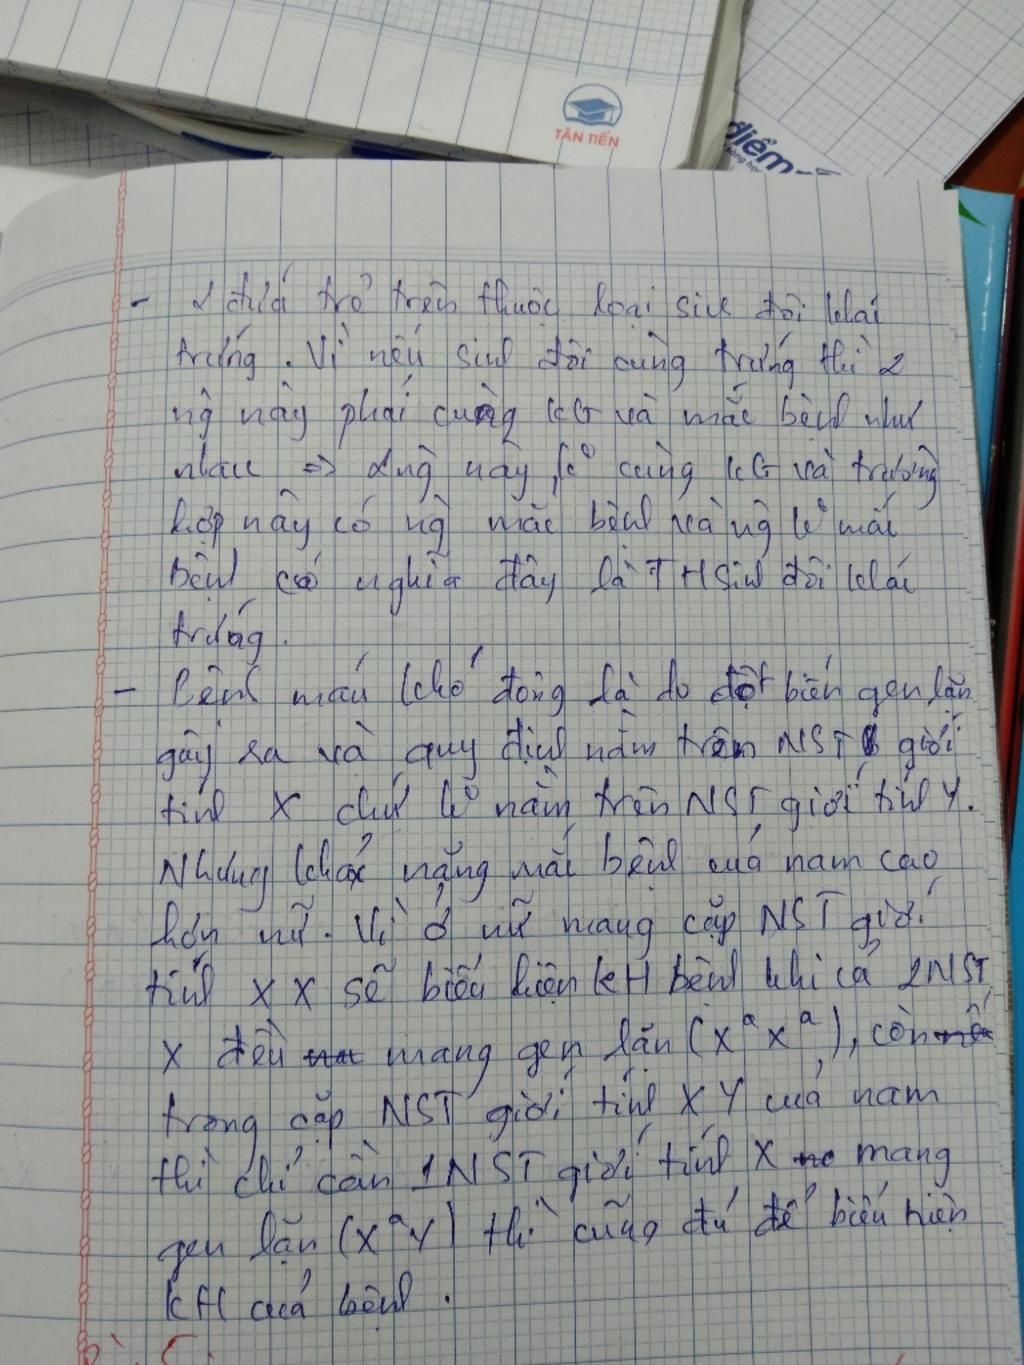 TÂN TIẾN
điểm
- 2 đứa trẻ trên thuộc loại sinh đôi khác
trứng. Vì nếu sinh đôi cùng trứng thì 2
ng này phải cùng KG và mắc bệnh như
nhau => 2 ng này k° cùng KG và trường
hợp này có ng mắc bệnh và ng k° mắc
bệnh có nghĩa đây là TH sinh đôi khác
trứng.
- Bệnh máu khó đông là do đột biến gen lặn
gây ra và quy định nằm trên NST giới
tính X chứ k° nằm trên NST giới tính Y.
Nhưng khả năng mắc bệnh của nam cao
hơn nữ. Vì ở nữ mang cặp NST giới
tính XX sẽ biểu hiện KH bệnh khi cả 2NST
X đều mang gen lặn (XᵃXᵃ), còn
trong cặp NST giới tính XY của nam
thì chỉ cần 1NST giới tính X mang
gen lặn (XᵃY) thì cũng đủ để biểu hiện
KH của bệnh.